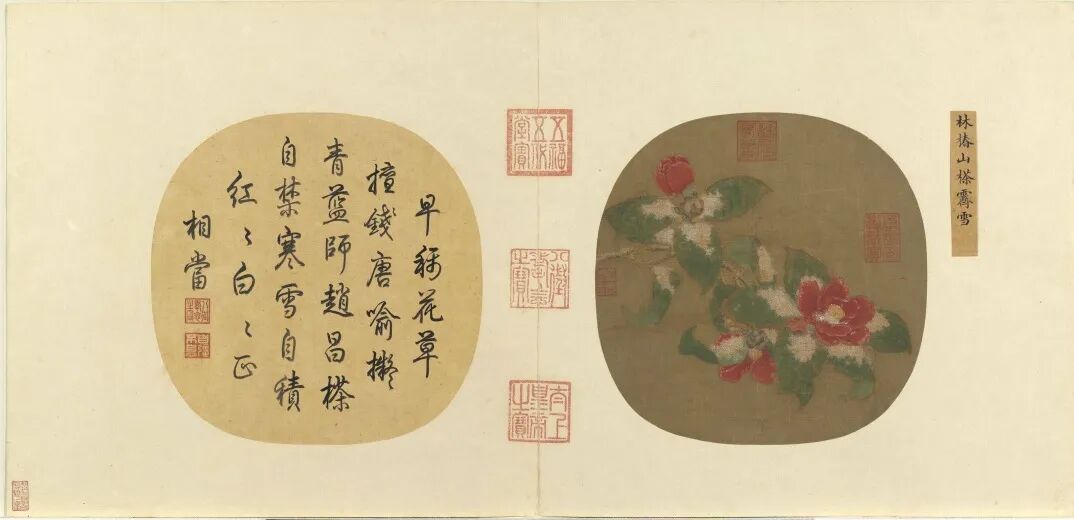 林椿山𣘻霽雪
五福
五代
堂寶
八徵
耄念
之寶
太上
皇帝
之寶
早稱花草
擅錢唐喻擬
青藍師趙昌𣘻
自禁寒雪自積
紅〻白〻正
相當